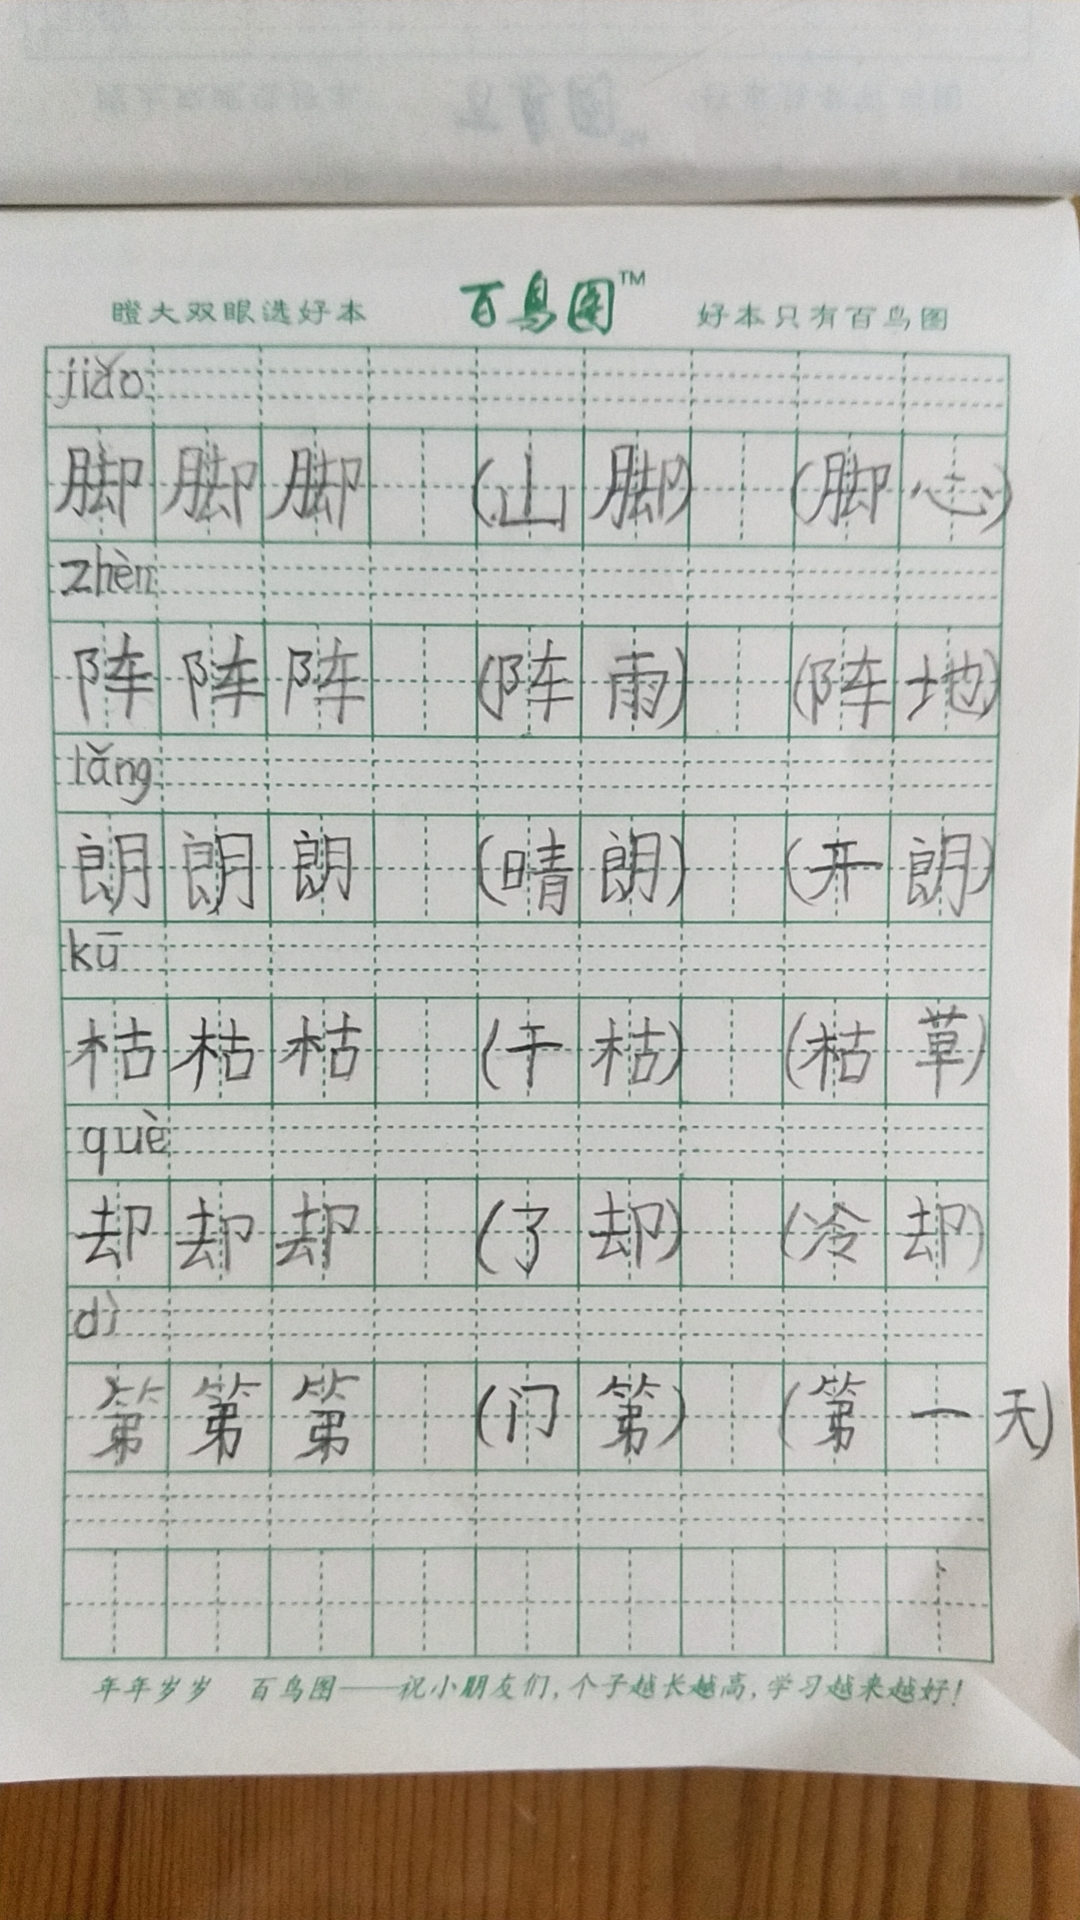 瞪大双眼选好本 百鸟图™ 好本只有百鸟图
jiǎo
脚 脚 脚 (山 脚) (脚 心)
zhèn
阵 阵 阵 (阵 雨) (阵 地)
lǎng
朗 朗 朗 (晴 朗) (开 朗)
kū
枯 枯 枯 (干 枯) (枯 草)
què
却 却 却 (了 却) (冷 却)
dì
第 第 第 (门 第) (第 一 天)
年年岁岁 百鸟图——祝小朋友们,个子越长越高,学习越来越好!